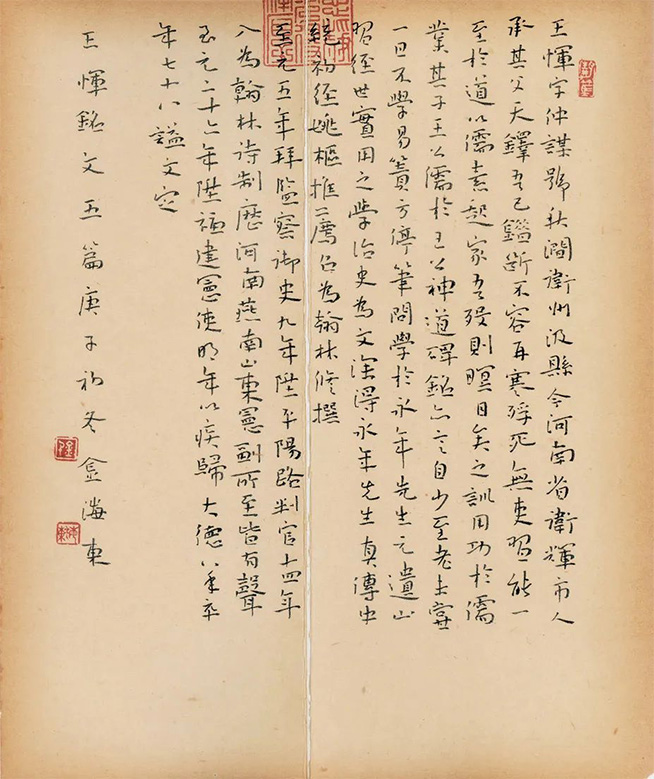 王惲字仲謀號秋澗衛州汲縣今河南省衛輝市人
承其父天鐸吾已鑑斷不容再寒殍死無吏習能一
至於道以儒素起家吾歿則瞑目矣之訓用功於儒
業其子王公儒於王公神道碑銘亦言自少至老未嘗
一日不學易簀方停筆問學於永年先生元遺山
習經世實用之學治史為文深得永年先生真傳中
統初經姚樞推薦召為翰林修撰
至元五年拜監察御史九年陞平陽路判官十四年
入為翰林待制歷河南燕南山東憲副所至皆有聲
至元二十六年陞福建憲使明年以疾歸大德八年卒
年七十八諡文定
王惲銘文五篇庚子初冬金海東